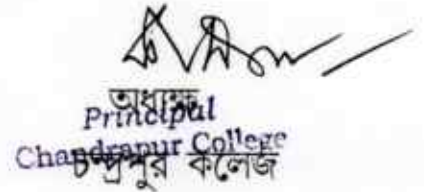 অধ্যক্ষ
Principal
Chandrapur College
চন্দ্রপুর কলেজ